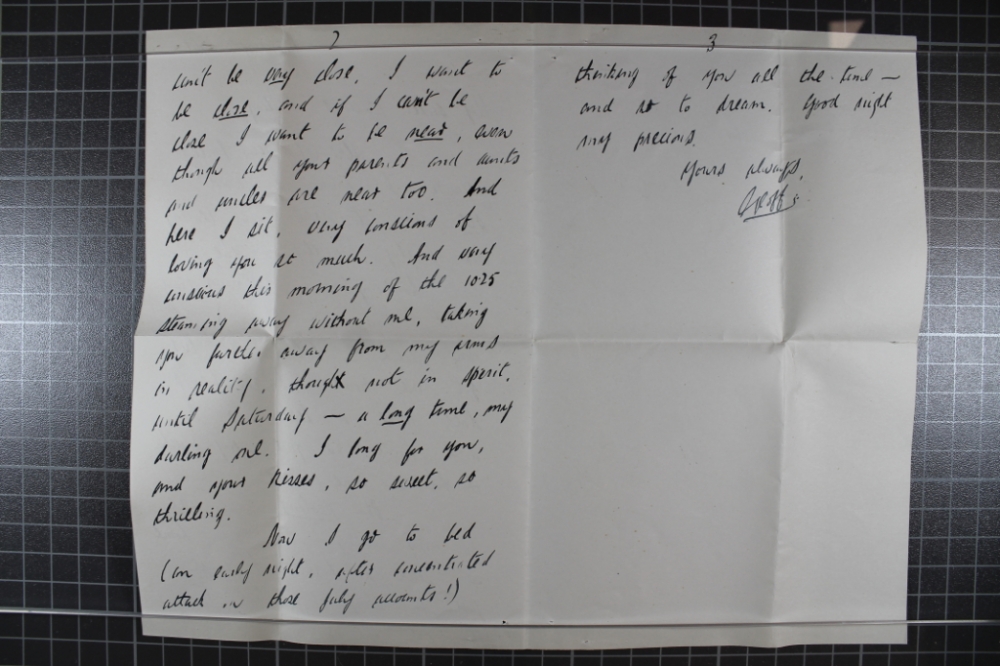 2
can't be very close. I want to
be close, and if I can't be
close I want to be near, even
though all your parents and aunts
and uncles are near too. And
here I sit, very conscious of
loving you so much. And very
conscious this morning of the 10.25
steaming away without me, taking
you further away from my arms
in reality, though not in spirit,
until Saturday — a long time, my
darling one. I long for you,
and your kisses, so sweet, so
thrilling.
Now I go to bed
(an early night, after concentrated
attack on those July accounts!)
3
thinking of you all the time —
and so to dream. Good night
my precious.
Yours always,
Geoff.